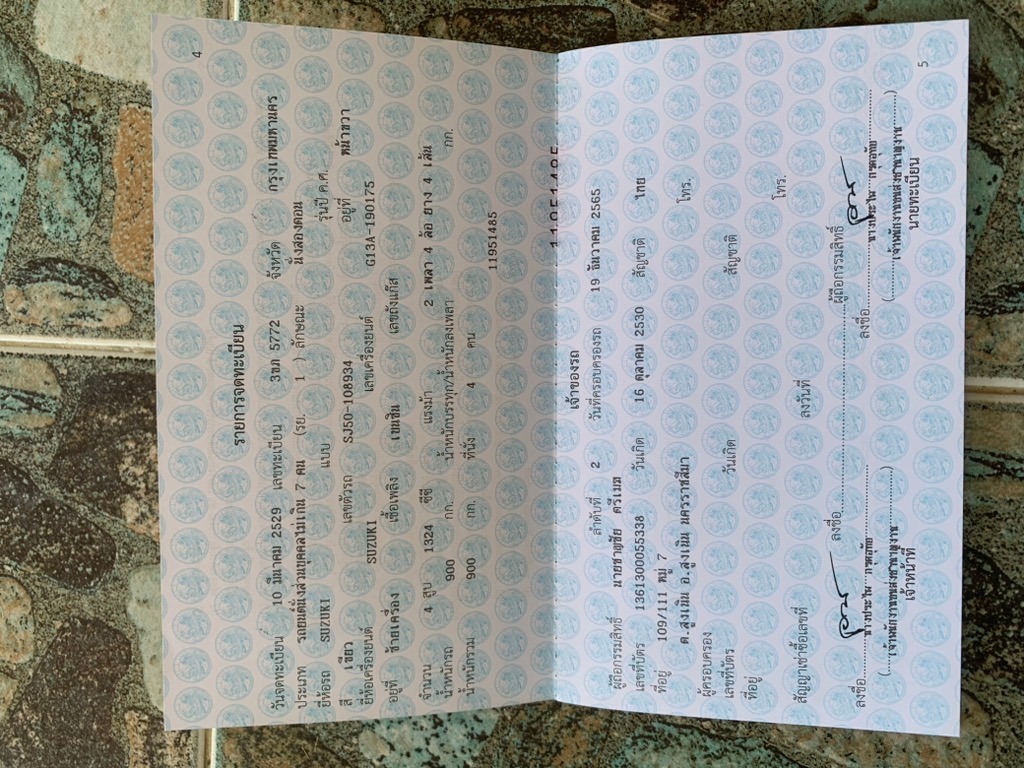 4
รายการจดทะเบียน
วันจดทะเบียน 10 มีนาคม 2529 เลขทะเบียน 3ขภ 5772 จังหวัด กรุงเทพมหานคร
ประเภท รถยนต์นั่งส่วนบุคคลไม่เกิน 7 คน (รย. 1 ) ลักษณะ นั่งสองตอน
ยี่ห้อรถ SUZUKI แบบ รุ่นปี ค.ศ.
สี เขียว เลขตัวรถ SJ50-108934 อยู่ที่ หน้าขวา
ยี่ห้อเครื่องยนต์ SUZUKI เลขเครื่องยนต์ G13A-190175
อยู่ที่ ซ้ายเครื่อง เชื้อเพลิง เบนซิน เลขถังแก๊ส
จำนวน 4 สูบ 1324 ซีซี แรงม้า 2 เพลา 4 ล้อ ยาง 4 เส้น
น้ำหนักรถ 900 กก. น้ำหนักบรรทุก/น้ำหนักลงเพลา กก.
น้ำหนักรวม 900 กก. ที่นั่ง 4 คน
11951485
11951485
เจ้าของรถ
ลำดับที่ 2 วันที่ครอบครองรถ 19 ธันวาคม 2565
ผู้ถือกรรมสิทธิ์ นายชาญชัย ศรีเมส
เลขที่บัตร 1361300055338 วันเกิด 16 ตุลาคม 2530 สัญชาติ ไทย
ที่อยู่ 109/111 หมู่ 7 โทร.
ต.สูงเนิน อ.สูงเนิน นครราชสีมา
ผู้ครอบครอง
เลขที่บัตร วันเกิด สัญชาติ
ที่อยู่ โทร.
สัญญาเช่าซื้อเลขที่ ลงวันที่
ลงชื่อ ผู้ถือกรรมสิทธิ์
ลงชื่อ ลงชื่อ
เจ้าหน้าที่ นายทะเบียน
5